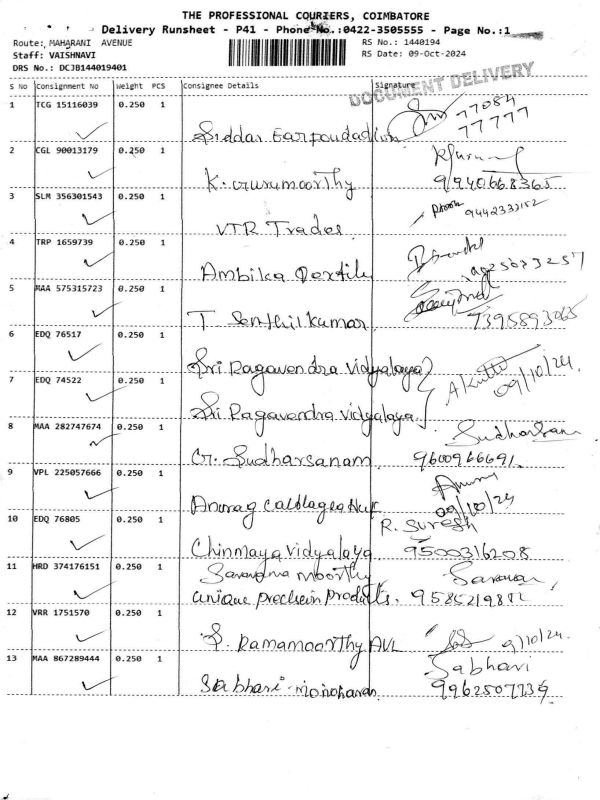 THE PROFESSIONAL COURIERS, COIMBATORE
Delivery Runsheet - P41 - Phone No.:0422-3505555 - Page No.:1
Route: MAHARANI AVENUE
RS No.: 1440194
Staff: VAISHNAVI
RS Date: 09-Oct-2024
DRS No.: DCJB144019401
DOCUMENT DELIVERY
S No Consignment No Weight PCS Consignee Details Signature
1 TCG 15116039 0.250 1
77084
77777
Siddar
2 CGL 90013179 0.250 1
K. Gurumoorthy 9940668365
3 SLM 356301543 0.250 1
9442333152
VTR Trades
4 TRP 1659739 0.250 1
Ambika Textile
5 MAA 575315723 0.250 1
T Senthil Kumar 7395893065
6 EDQ 76517 0.250 1
Sri Ragavendra Vidyalaya
09/10/24
7 EDQ 74522 0.250 1
Sri Ragavendra Vidyalaya
8 MAA 282747674 0.250 1
Sudharsan
G. Sudharsanam 9600966691
9 VPL 225057666 0.250 1
09/10/24
Anurag
10 EDQ 76805 0.250 1
R. Suresh
Chinmaya Vidyalaya 9500316208
11 HRD 374176151 0.250 1
moorthy Saravan
unique products.
12 VRR 1751570 0.250 1
S. Ramamoorthy AVL 9/10/24
13 MAA 867289444 0.250 1
Sabhari
Sabhari manoharan 9962507739